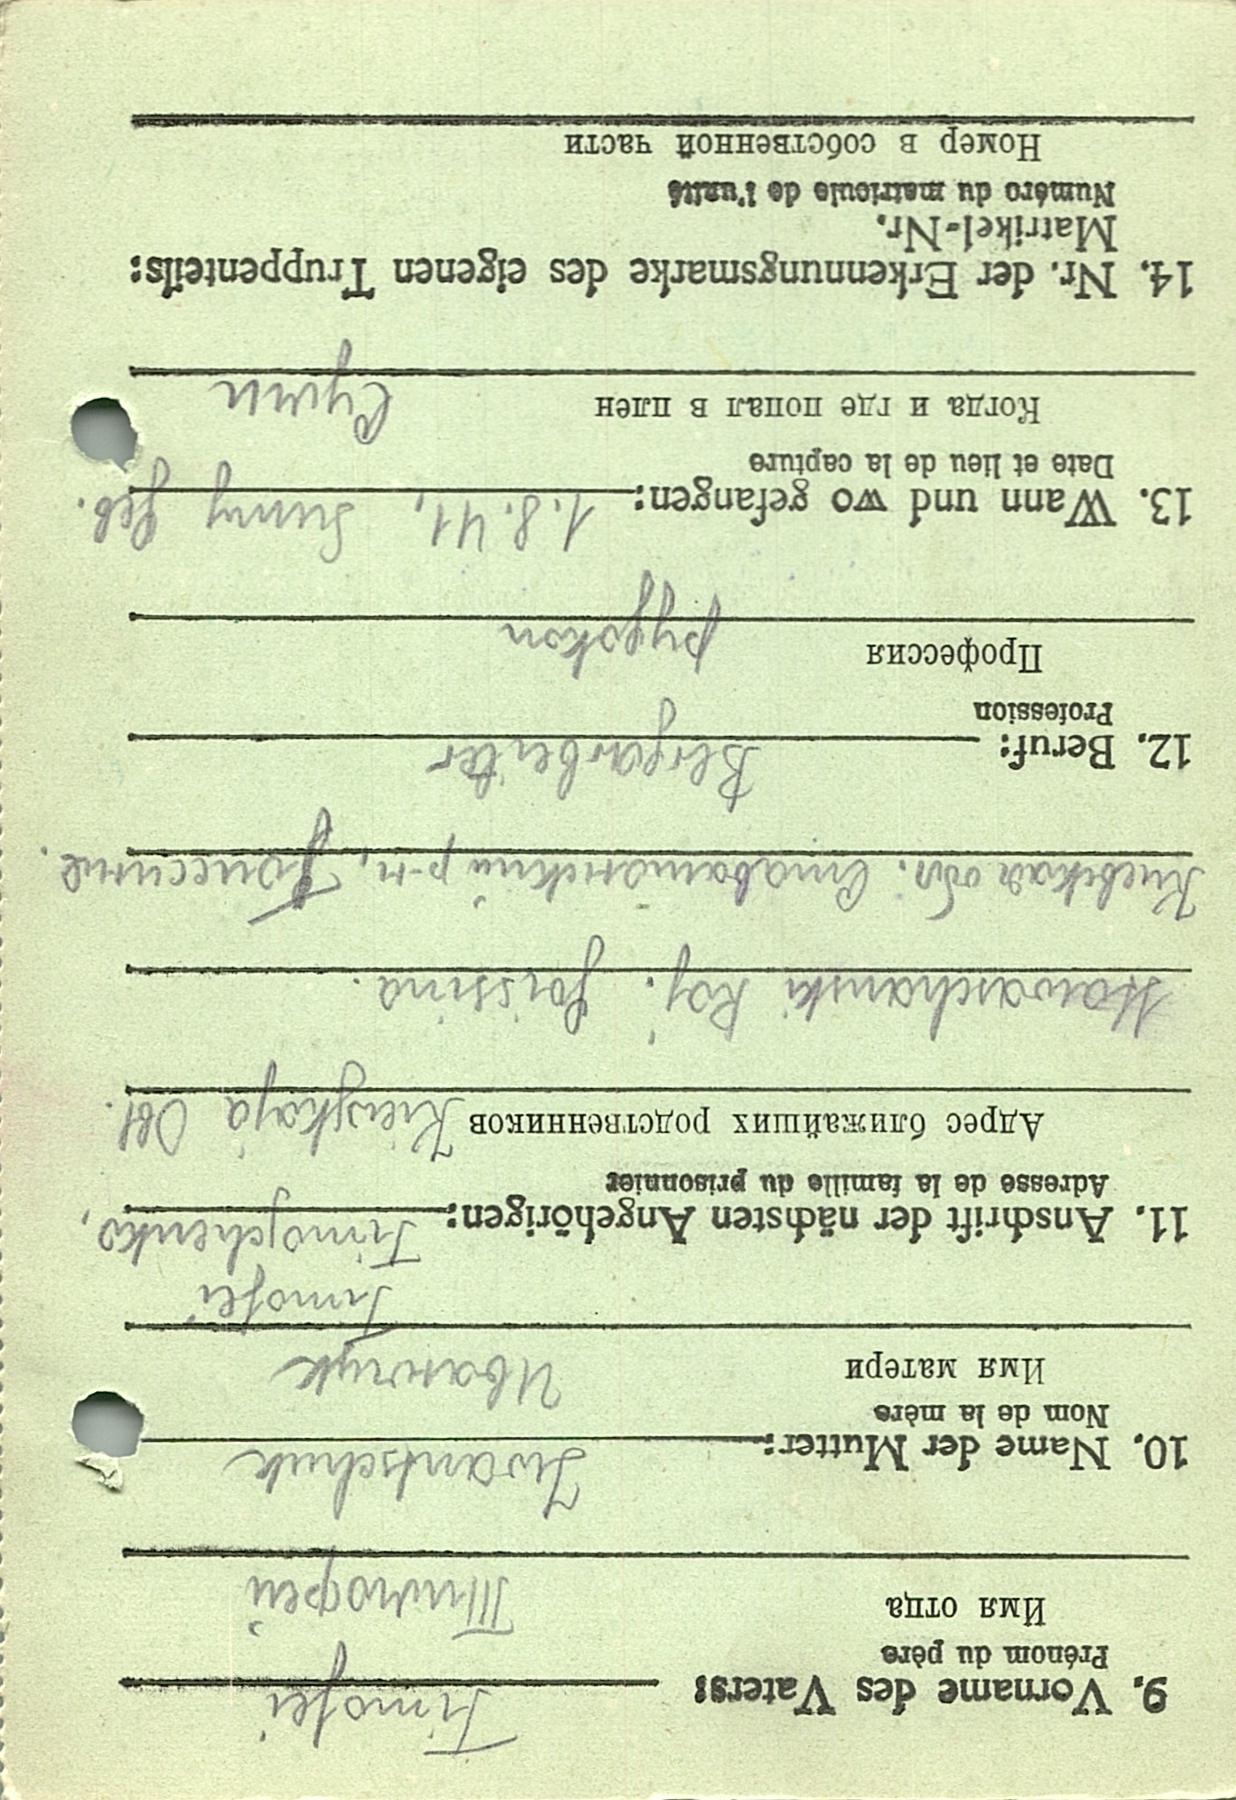 9. Vorname des Vaters: Timofei
Prénom du père
Имя отца Тимофей
10. Name der Mutter: Iwantschuk
Nom de la mère
Имя матери Иванчук
Timofei
11. Anschrift der nächsten Angehörigen: Timoschenko,
Adresse de la famille du prisonnier
Адрес ближайших родственников Kiewskaja Obl.
Ray.
Киевская обл. р-н,
12. Beruf: Bergarbeiter
Profession
Профессия рудокоп
13. Wann und wo gefangen: 1.8.41, Sumy Geb.
Date et lieu de la capture
Когда и где попал в плен Сумы
14. Nr. der Erkennungsmarke des eigenen Truppenteils:
Matrikel-Nr.
Numéro du matricule de l'unité
Номер в собственной части